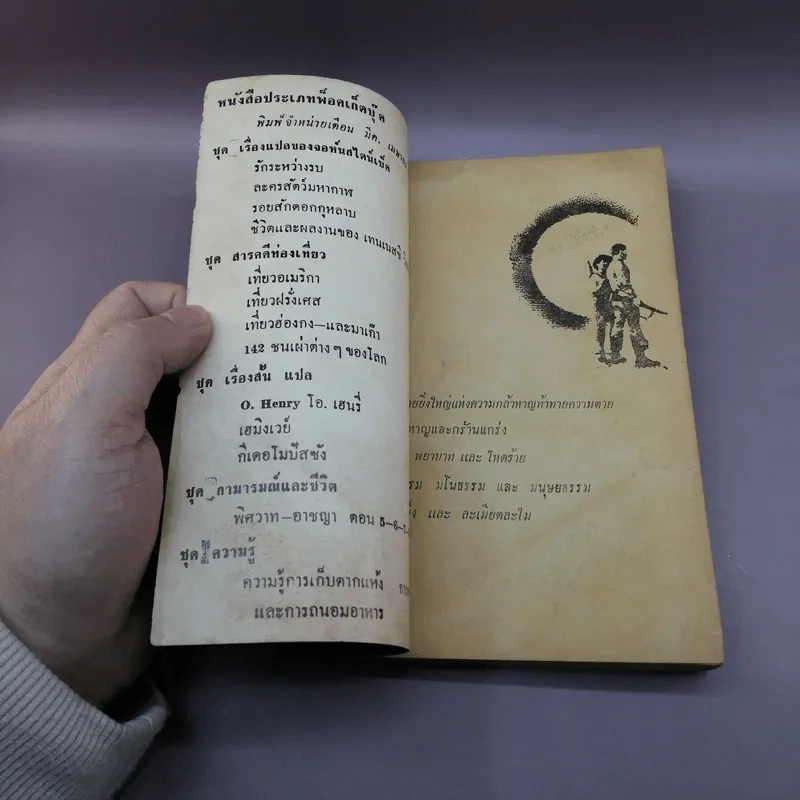 หนังสือประเภทพ็อคเก็ตบุ๊ค
พิมพ์จำหน่ายเดือน มีค. เมษายน
ชุด เรื่องแปลของจอห์นสไตน์เบ็ค
รักระหว่างรบ
ละครสัตว์มหากาฬ
รอยสักดอกกุหลาบ
ชีวิตและผลงานของ เทนเนสซี
ชุด สารคดีท่องเที่ยว
เที่ยวอเมริกา
เที่ยวฝรั่งเศส
เที่ยวฮ่องกง—และมาเก๊า
142 ชนเผ่าต่าง ๆ ของโลก
ชุด เรื่องสั้น แปล
O. Henry โอ. เฮนรี่
เฮมิงเวย์
กีเดอโมปัสซัง
ชุด กามารมณ์และชีวิต
พิศวาท—อาชญา ตอน 5—6—7
ชุด ความรู้
ความรู้การเก็บตากแห้ง
และการถนอมอาหาร
ยิ่งใหญ่แห่งความกล้าหาญท้าทายความตาย
หาญและกร้านแกร่ง
พยาบาท และ โหดร้าย
รรม มโนธรรม และ มนุษยธรรม
และ ละเมียดละไม